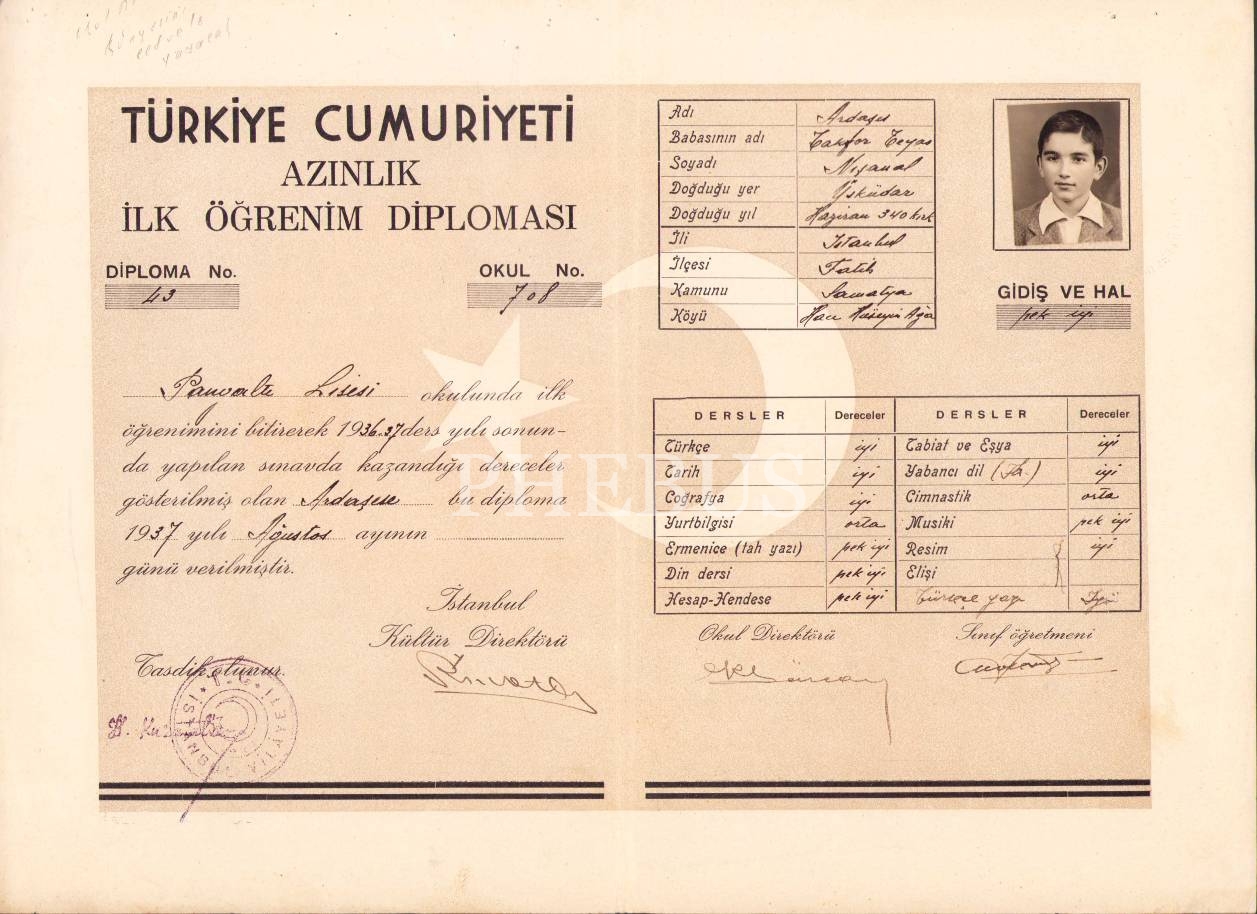 TÜRKİYE CUMURİYETİ
AZINLIK
İLK ÖĞRENİM DİPLOMASI
DİPLOMA No.
43
OKUL No.
708
Pangaltı Lisesi okulunda ilk
öğrenimini bitirerek 1936-37 ders yılı sonun-
da yapılan sınavda kazandığı dereceler
gösterilmiş olan Ardaşese bu diploma
1937 yılı Ağustos ayının
günü verilmiştir.
İstanbul
Kültür Direktörü
Tasdik olunur.
Adı Ardaşes
Babasının adı
Soyadı Nişanal
Doğduğu yer Üsküdar
Doğduğu yıl Haziran 340 kırk
İli İstanbul
İlçesi Fatih
Kamunu Samatya
Köyü Hacı Hüseyin Ağa
GİDİŞ VE HAL
pek iyi
DERSLER Dereceler
Türkçe iyi
Tarih iyi
Coğrafya iyi
Yurtbilgisi orta
Ermenice (tah yazı) pek iyi
Din dersi pek iyi
Hesap-Hendese pek iyi
DERSLER Dereceler
Tabiat ve Eşya iyi
Yabancı dil iyi
Cimnastik orta
Musiki pek iyi
Resim iyi
Elişi
Türkçe yazı İyi
Okul Direktörü
Sınıf öğretmeni
PHEBUS